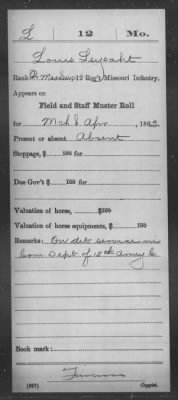 L | 12 | Mo.
Louis
Rank Q. Master, 12 Reg't Missouri Infantry.
Appears on
Field and Staff Muster Roll
for Mch & Apr, 1863
Present or absent, Absent
Stoppage, $ 100 for
Due Gov't $ 100 for
Valuation of horse, $ 100
Valuation of horse equipments, $ 100
Remarks: On det service in
Com Dept of 15th Army C
Book mark:
(357) Copyist.